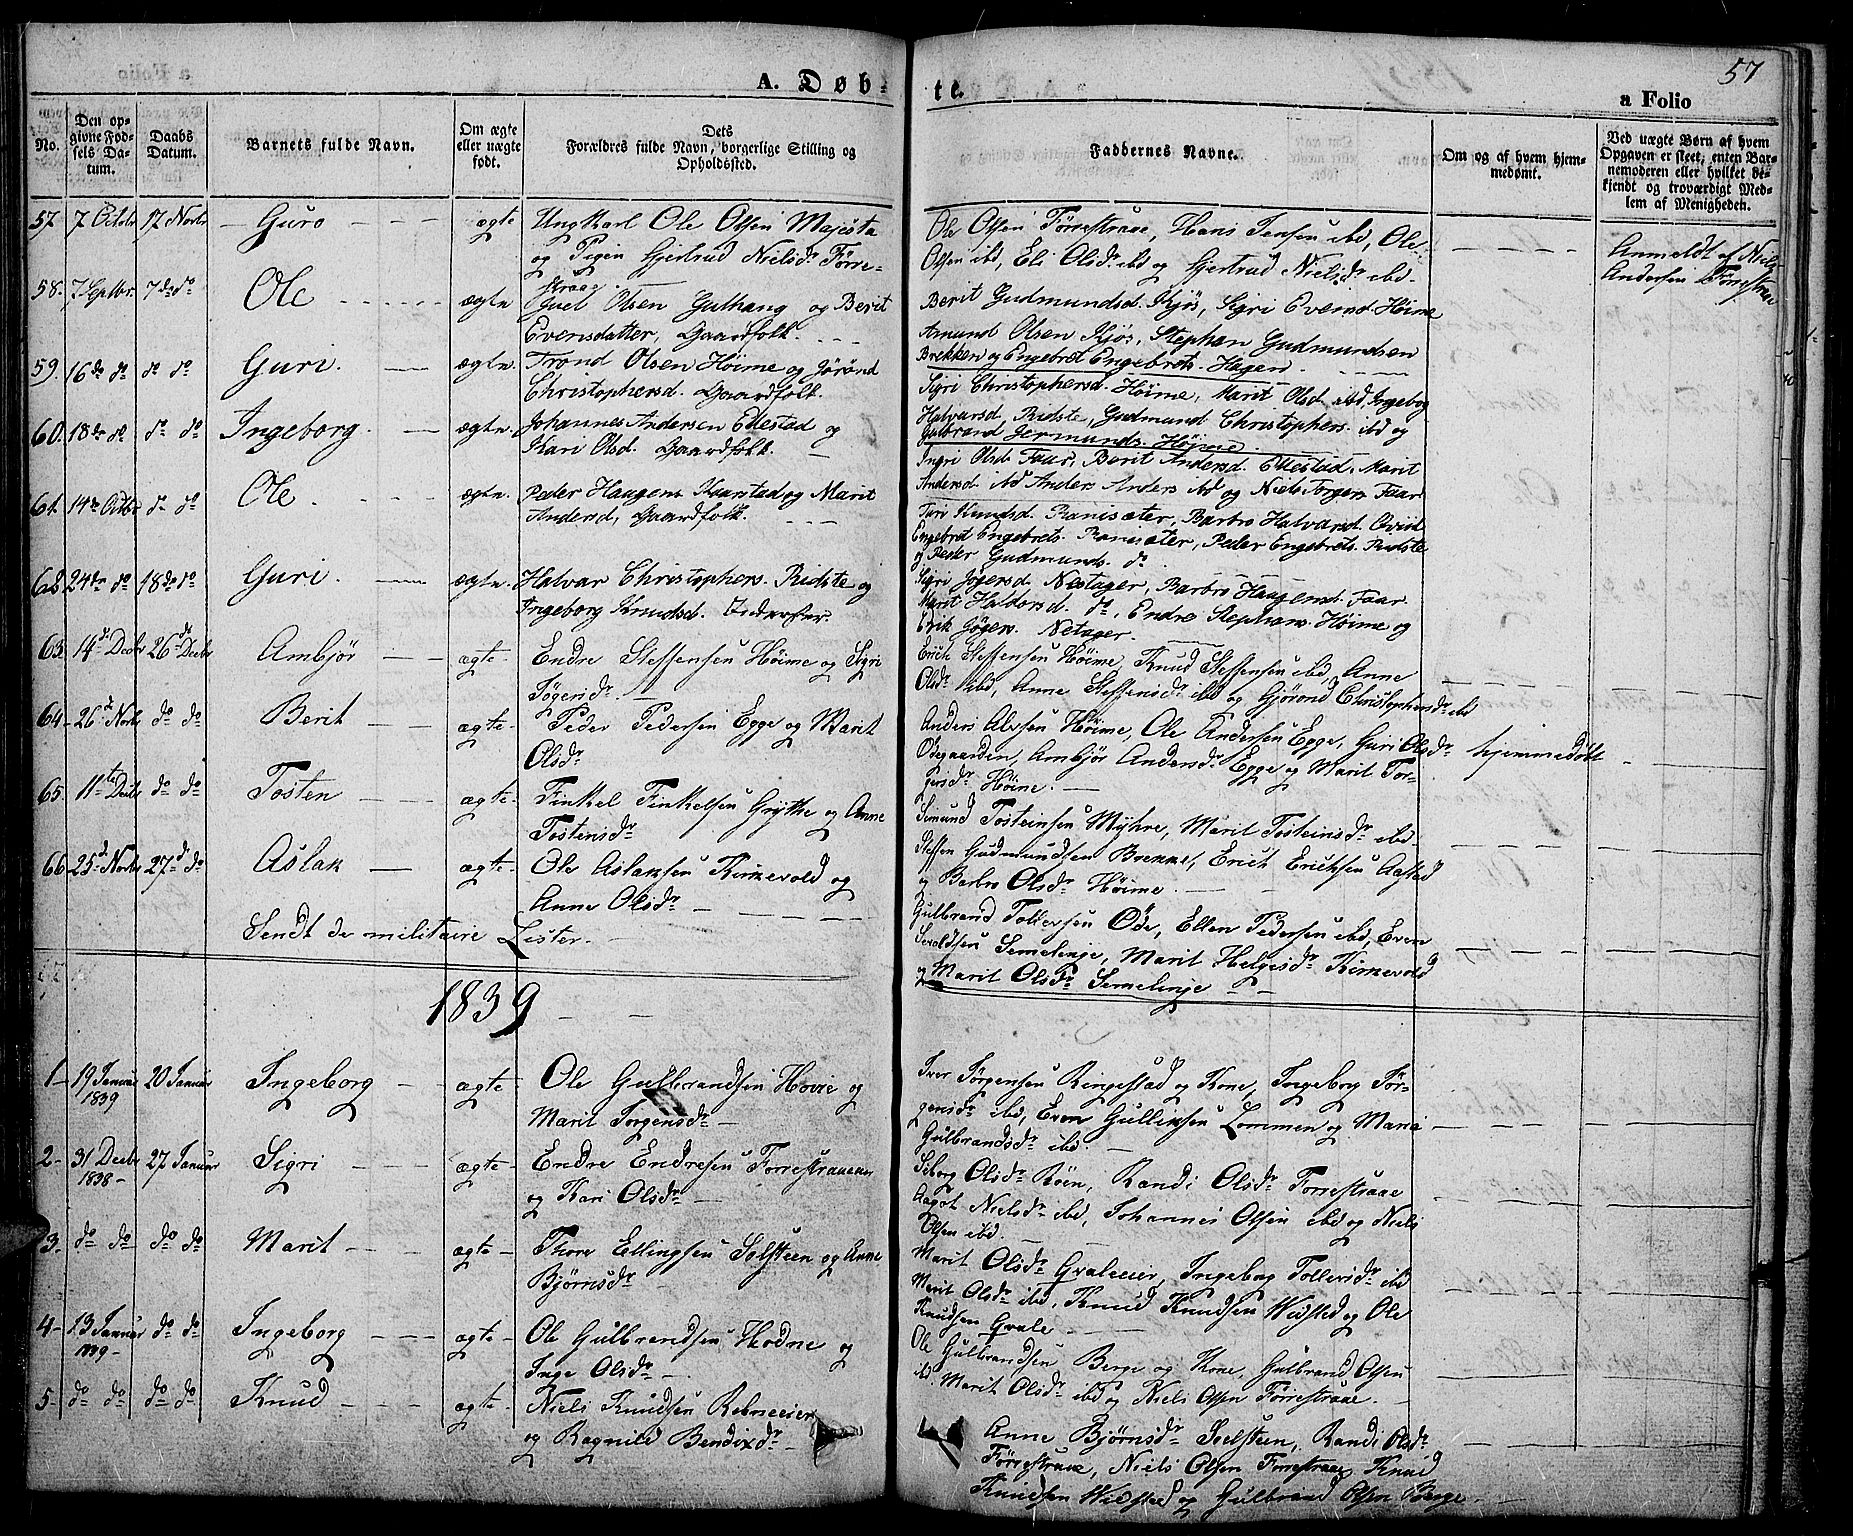 57
A. Døbte.
a Folio
No.
Den opgivne Fødsels Datum.
Daabs Datum.
Barnets fulde Navn.
Om ægte eller uægte født.
Dets Forældres fulde Navn, borgerlige Stilling og Opholdssted.
Faddernes Navne.
Om og af hvem hjemmedømt.
Ved uægte Børn af hvem Opgaven er skeet, enten Barnemoderen eller hvilket bekjendt og troværdigt Medlem af Menigheden.
57. 7 Octbr 17 Novbr Guro ægte Ungkarl Ole Olsen Majesta
og Pigen Gjertrud Nielsdr Førrestraae
Ole Olsen Førrestraae, Hans Jensen ibd, Ole
Olsen ibd, Eli Olsdr ibd og Gjertrud Nielsdr ibd.
Anmeldt af Niels
Andersen Førrestraae
58. 7 Septbr. 7de do Ole ægte. Olsen Guthang og Berit
Evensdatter, Gaardfolk.
Berit Gudmundsd. Kjøs, Sigri Evensd Høime
Amund Olsen Kjøs, Stephen Gudmundsen
Brekken og Engebret Engebrets. Hagen.
59. 16de do do do Guri. ægte. Trond Olsen Høime og Jørønd
Christophersd. Gaardfolk.
Sigri Christophersd. Høime, Marit Olsd ibd, Ingebog
Halvarsd Ridste, Gudmund Christophers. ibd og
Gulbrand Germunds. Høime.
60. 18de do do do Ingeborg. ægte. Johannes Andersen Ellestad og
Kari Olsd. Gaardfolk.
Ingri Olsd Faar, Berit Andersd. Ellestad, Marit
Andersd ibd Anders Anders ibd og Niels Torgers Faar
61. 14de Octbr do do Ole. ægte. Peder Haagens Kaarstad og Marit
Andersd, Gaardfolk.
Turi Knudsd. Ranisæter, Barbro Halvarsd. Qvist
Engebret Engebrets. Ranisæter, Peder Engebrets. Ridste
og Peder Gudmunds. do.
62 24de do 18de do Guri. ægte. Halvar Christophers. Ridste og
Ingeborg Knudsd.
Sigri Jøgersd Nestager, Barbro Haagensd. Faar.
Marit Haldorsd. do, Endre Stephans. Høime og
Erik Jøgers. Netager.
63 14d Decbr 26de Decbr Ambjør ægte Endre Steffensen Høime og Sigri
Jøgersdr
Erich Steffensen Høime, Knud Steffensen ibd, Anne
Olsdr ibd, Anne Steffensdr ibd og Gjørond Christophersdr ibd
64 26d Novbr do do Berit ægte Peder Pedersen Egge og Marit
Olsdr
Anders Høime, Ole Andersen Egge, Guri Olsdr
Odegaarden, Ambjør Andersdr Egge og Marit Torgersdr Høime.
hjemmedøbt
65 11te Decbr do do Tosten ægte Finkel Finkelsen Grythe og Anne
Tostensdr
Simund Tosteinsen Myhre, Marit Tosteinsdr ibd
Steffen Gudmundsen Brekke, Erich Erichsen Aastad
og Barbro Olsdr Høime.
66 25d Novbr 27d do Aslak ægte Ole Aslaksen Kirkevold og
Anne Olsdr
Gulbrand Tollersen Øde, Ellen Pedersen ibd, Even
Semelinge, Marit Helgesdr Kirkevold
og Marit Olsdr Semelinje
Sendt de militaire Lister.
1839
1 19 Januar 1839 20 Januar Ingeborg ægte Ole Gulbrandsen Hovie og
Marit Jorgensdr
Iver Jørgensen Ringestad og Kone, Ingeborg Jørgensdr ibd, Even Gulliksen Lommen og Maria
Gulbrandsdr ibd.
2 31 Decbr 1838 27 Januar Sigri ægte Endre Endresen Forrestraaeeier
og Kari Olsdr
Siborg Olsdr Røen, Randi Olsdr Forrestraae
Aagot Nielsdr ibd, Johannes Olsen ibd og Niels
Olsen ibd.
3. do do do do Marit ægte Thore Ellingsen Solsteen og Anne
Bjørnsdr
Marit Olsdr Gvaleeier, Ingeborg Tollersdr ibd
Marit Olsdr ibd, Knud Knudsen Widsted og Ole
Knudsen Gvale
4 13 Januar 1839 do do Ingeborg ægte Ole Gulbrandsen Hodne og
Inge Olsdr
Ole Gulbrandsen Berge og Kone, Gulbrand Olsen
ibd Marit Olsdr ibd og Niels Olsen Førrestraae.
5 do do do do Knud ægte Niels Knudsen Rebneeier
og Ragnild Bendixdr
Anne Bjørnsdr Soelsteen, Randi Olsdr
Førrestraae, Niels Olsen Førrestraae Knud
Knudsen Widsted og Gulbrand Olsen Berge